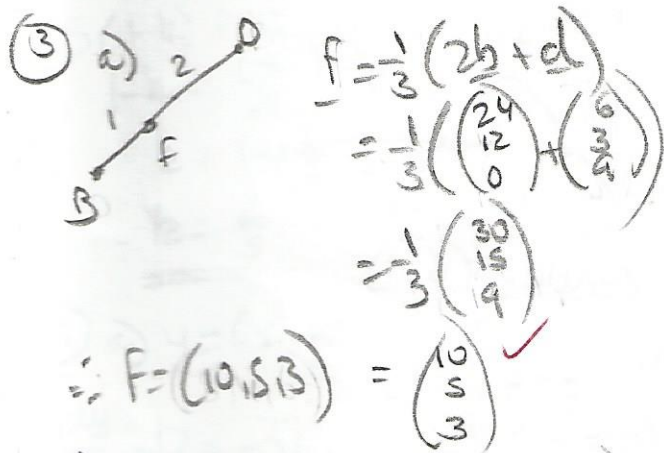 ③ a) 2 D f = 1/3 (2b + d)
1 F = 1/3 ((24 12 0) + (6 3 9))
B = 1/3 (30 15 9)
∴ F = (10,5,3) = (10 5 3) ✓